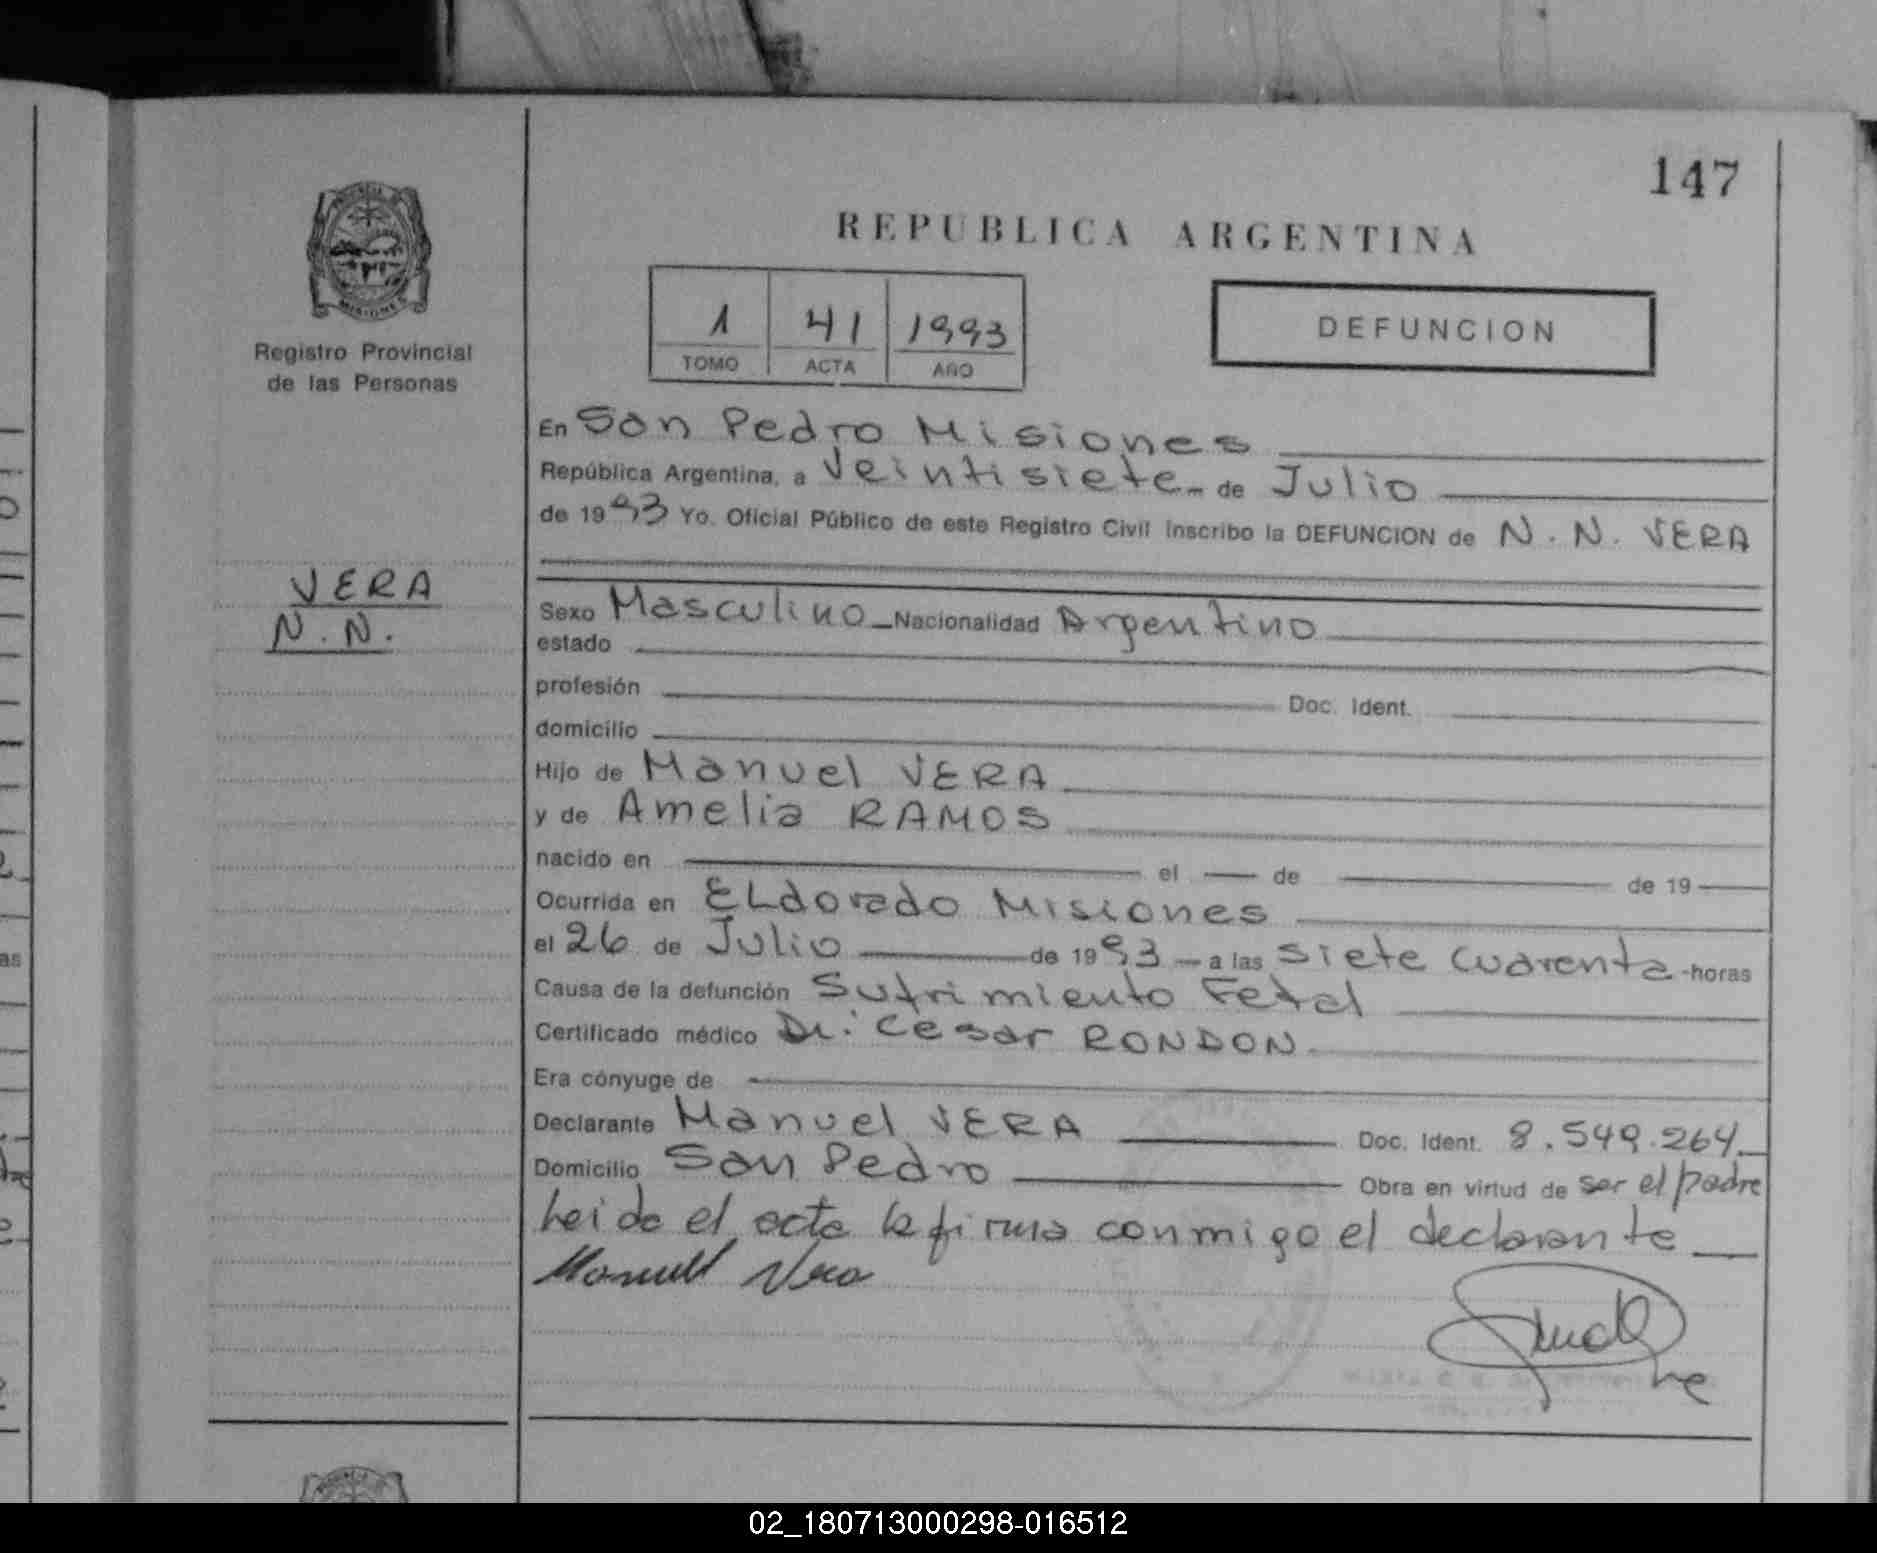 147
REPUBLICA ARGENTINA
1 41 1993
TOMO ACTA AÑO
DEFUNCION
MISIONES
Registro Provincial
de las Personas
VERA
N. N.
En San Pedro Misiones
República Argentina, a Veintisiete de Julio
de 1993 Yo. Oficial Público de este Registro Civil Inscribo la DEFUNCION de N. N. VERA
Sexo Masculino Nacionalidad Argentino
estado
profesión Doc. Ident.
domicilio
Hijo de Manuel VERA
y de Amelia RAMOS
nacido en el de de 19
Ocurrida en ELdorado Misiones
el 26 de Julio de 1993 a las Siete Cuarenta horas
Causa de la defunción Sufrimiento Fetal
Certificado médico Dr: Cesar RONDON
Era cónyuge de
Declarante Manuel VERA Doc. Ident. 8.549.264
Domicilio San Pedro Obra en virtud de ser el padre
Leida el acta la firma conmigo el declarante
Manuel Vera
02_180713000298-016512